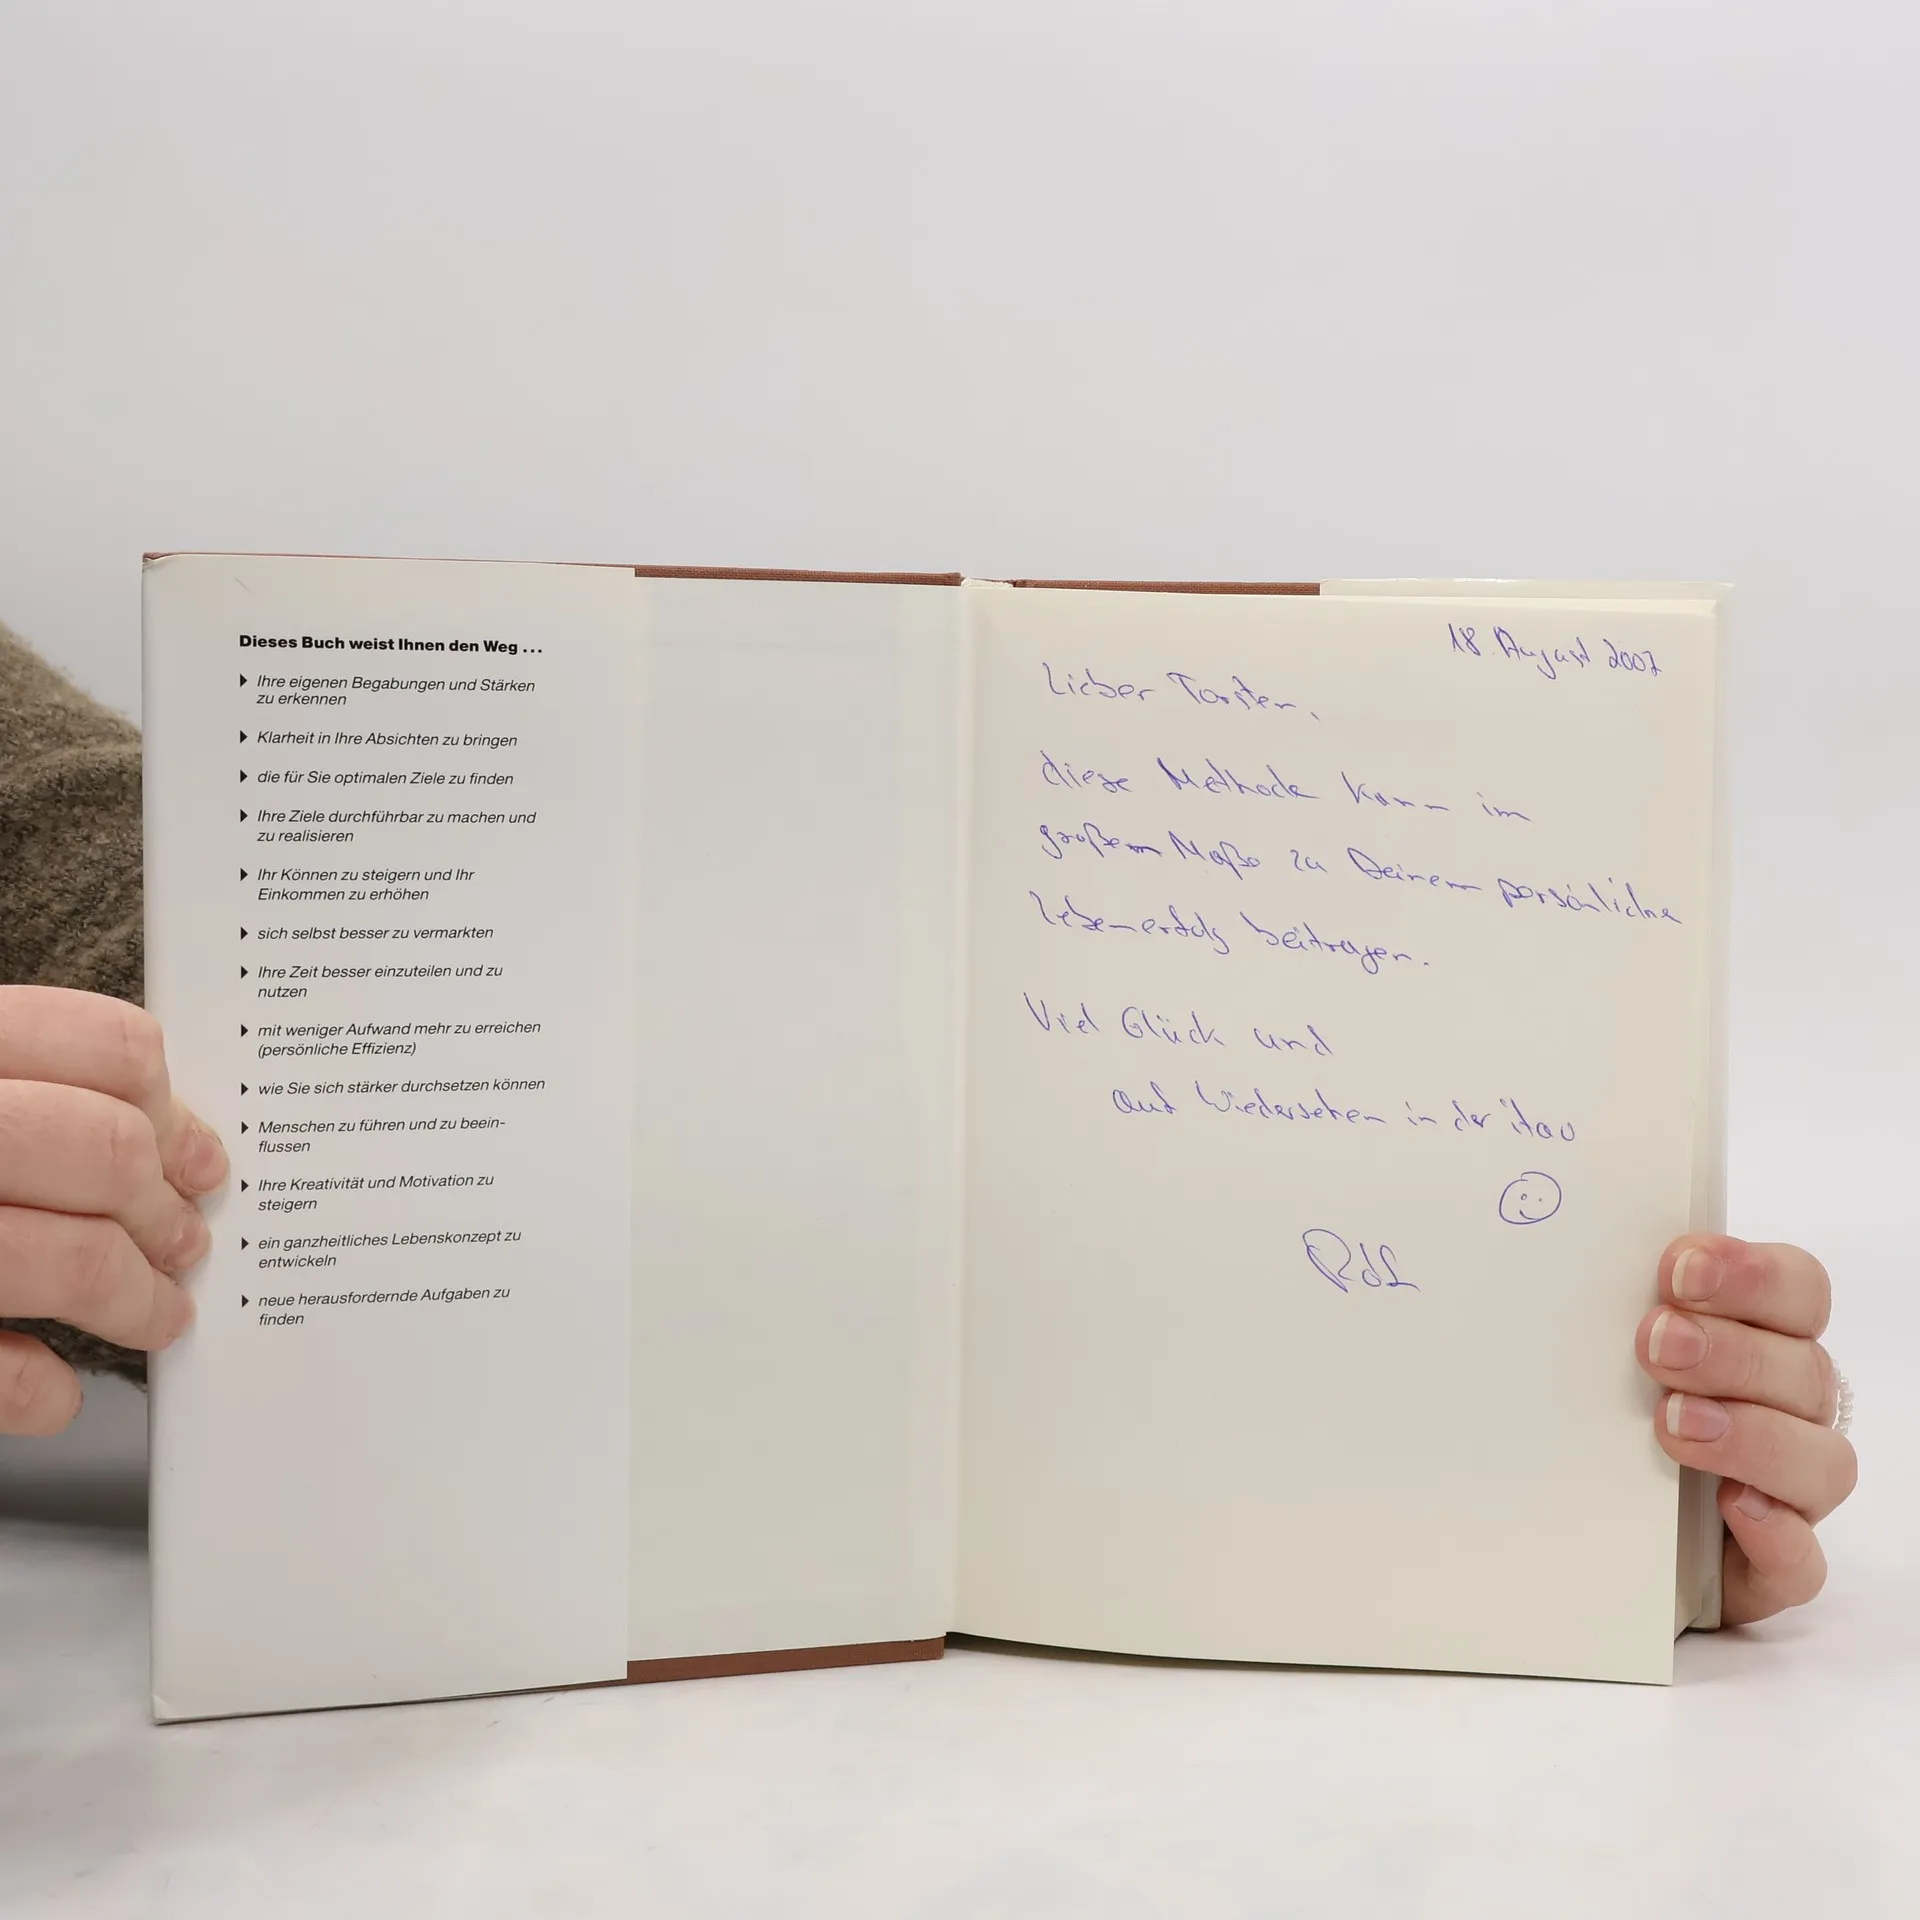 Dieses Buch weist Ihnen den Weg ...
Ihre eigenen Begabungen und Stärken
zu erkennen
Klarheit in Ihre Absichten zu bringen
die für Sie optimalen Ziele zu finden
Ihre Ziele durchführbar zu machen und
zu realisieren
Ihr Können zu steigern und Ihr
Einkommen zu erhöhen
sich selbst besser zu vermarkten
Ihre Zeit besser einzuteilen und zu
nutzen
mit weniger Aufwand mehr zu erreichen
(persönliche Effizienz)
wie Sie sich stärker durchsetzen können
Menschen zu führen und zu beein-
flussen
Ihre Kreativität und Motivation zu
steigern
ein ganzheitliches Lebenskonzept zu
entwickeln
neue herausfordernde Aufgaben zu
finden
18. August 2007
Lieber Torsten,
diese Methode kann im
großem Maße zu Deinem persönliche
Lebenserfolg beitragen.
Viel Glück und
auf Wiedersehen in der